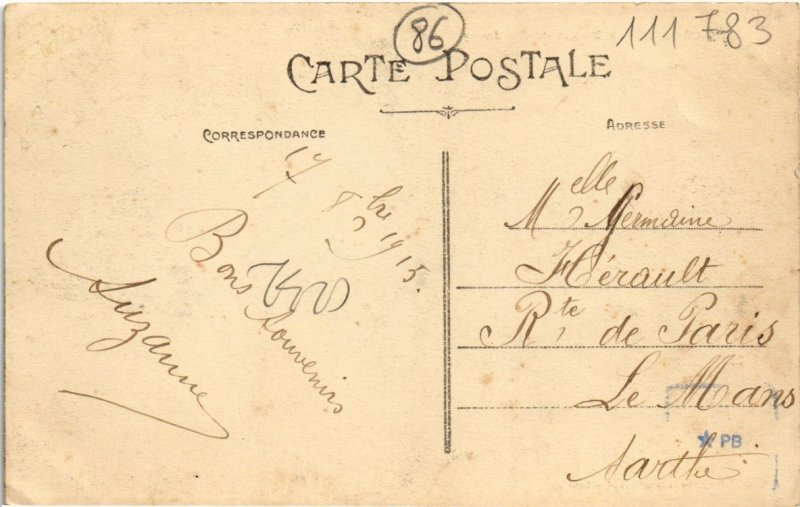 86
111 783
CARTE POSTALE
CORRESPONDANCE
ADRESSE
17 8bre 1915.
Bons Souvenirs
Suzanne
Melle Germaine
Hérault
Rte de Paris
Le Mans
PB
Sarthe